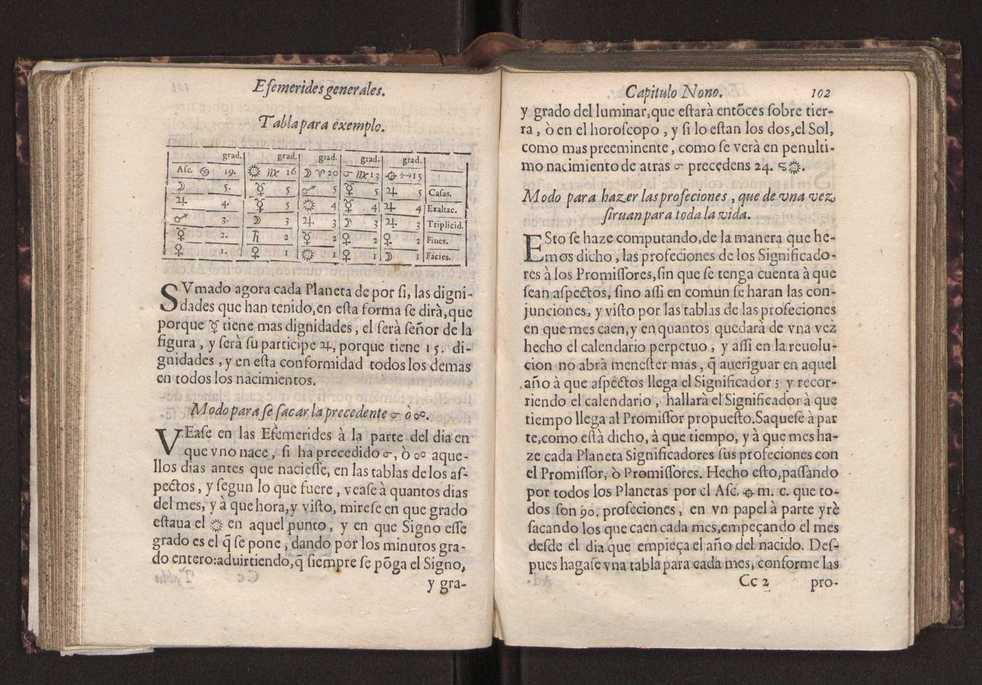 Efemerides generales.
Tabla para exemplo.
grad. grad. grad. grad. grad.
Asc. ♋ 19. ☼ ♍ 16 ☽ ♈ 20 ☌ ♍ 13 ⊕ ♐ 15
☽ 5. ☿ 5 ♂ 5 ☿ 5 ♃ 5 Casas.
♃ 4. ☿ 5 ☼ 4 ☿ 4 ♃ 4 Exaltac.
♂ 3. ☽ 3 ♃ 3 ☽ 3 ♃ 3 Triplicid.
☿ 2. ♄ 2 ☿ 2 ♀ 2 ♀ 2 Fines.
♀ 1. ♀ 1 ☼ 1 ♀ 1 ☽ 1 Facies.
SVmado agora cada Planeta de por si, las digni-
dades que han tenido, en esta forma se dirà, que
porque ☿ tiene mas dignidades, el serà señor de la
figura, y serà su participe ♃, porque tiene 15. di-
gnidades, y en esta conformidad todos los demas
en todos los nacimientos.
Modo para se sacar la precedente ☌ ò ☍.
VEase en las Efemerides à la parte del dia en
que vno nace, si ha precedido ☌, ò ☍ aque-
llos dias antes que naciesse, en las tablas de los as-
pectos, y segun lo que fuere, vease à quantos dias
del mes, y à que hora, y visto, mirese en que grado
estaua el ☼ en aquel punto, y en que Signo esse
grado es el q̃ se pone, dando por los minutos gra-
do entero: aduirtiendo, q̃ siempre se põga el Signo,
y gra-
Capitulo Nono. 102
y grado del luminar, que estarà entõces sobre tier-
ra, ò en el horoscopo, y si lo estan los dos, el Sol,
como mas preeminente, como se verà en penulti-
mo nacimiento de atras ☌ precedens 24. ♋ ☼.
Modo para hazer las profeciones, que de vna vez
siruan para toda la vida.
ESto se haze computando, de la manera que he-
mos dicho, las profeciones de los Significado-
res à los Promissores, sin que se tenga cuenta à que
sean aspectos, sino assi en comun se haran las con-
junciones, y visto por las tablas de las profeciones
en que mes caen, y en quantos quedarà de vna vez
hecho el calendario perpetuo, y assi en la reuolu-
cion no abrà menester mas, q̃ aueriguar en aquel
año à que aspectos llega el Significador; y recor-
riendo el calendario, hallarà el Significador à que
tiempo llega al Promissor propuesto. Saquese à par
te, como està dicho, à que tiempo, y à que mes ha-
ze cada Planeta Significadores sus profeciones con
el Promissor, ò Promissores. Hecho esto, passando
por todos los Planetas por el Asc. ⊕ m. c. que to-
dos son 90. profeciones, en vn papel à parte yrè
sacando los que caen cada mes, empeçando el mes
desde el dia que empieça el año del nacido. Des-
pues hagase vna tabla para cada mes, conforme las
Cc 2 pro-